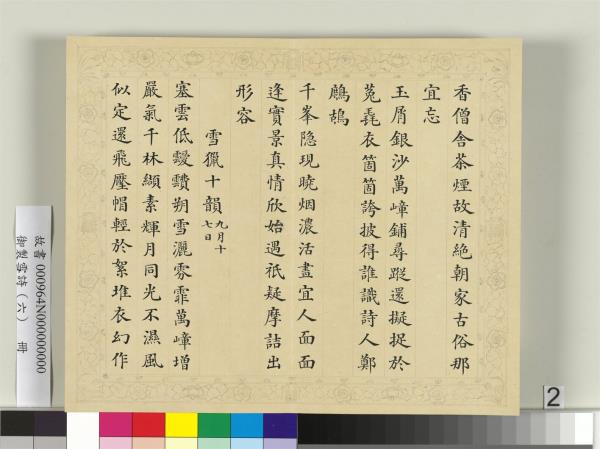 香僧舍茶煙故清絕朝家古俗那
宜忘
玉屑銀沙萬嶂鋪尋蹤還擬捉於
菟毳衣箇箇誇披得誰識詩人鄭
鷓鴣
千峯隐現曉烟濃活畫宜人面面
逢實景真情欣始遇祇疑摩詰出
形容
雪獵十韻九月十七日
塞雲低靉靅朔雪灑雰霏萬嶂增
嚴氣千林纈素輝月同光不濕風
似定還飛壓帽輕於絮堆衣幻作
故書 000964N000000000
御製雪詩（六） 冊
2